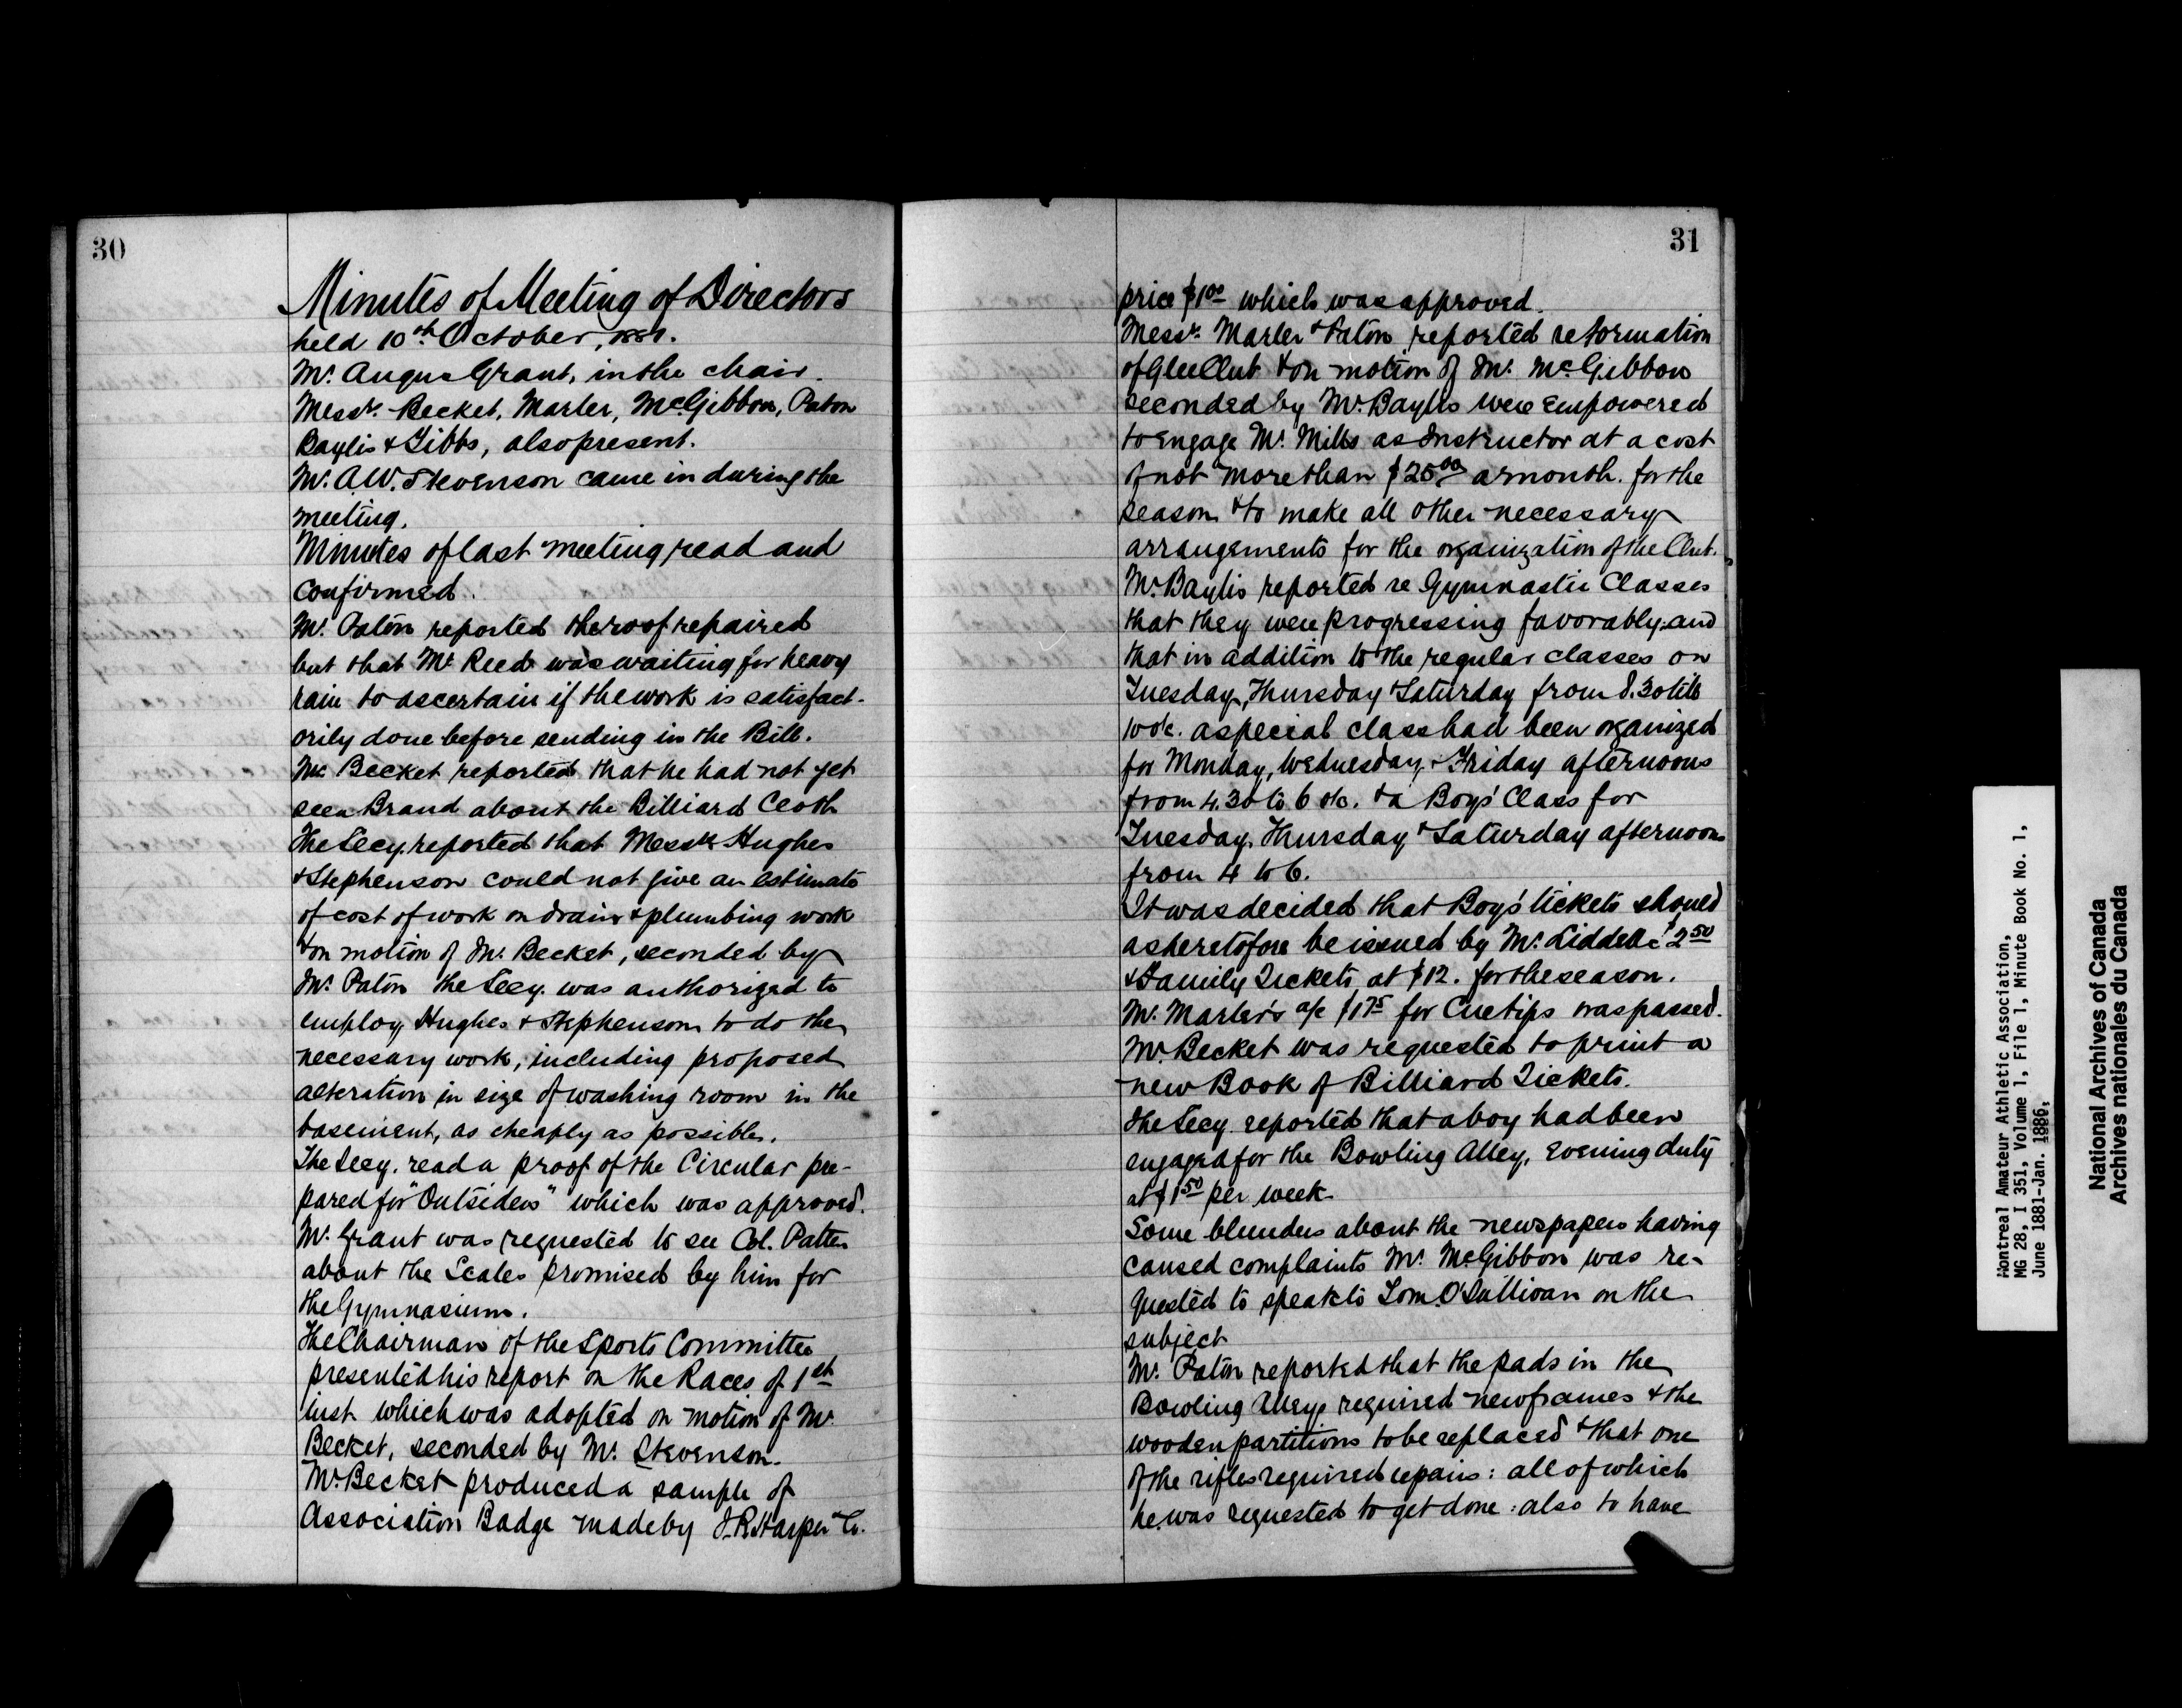 30
Minutes of Meeting of Directors
held 10th October, 1881.
Mr. Angus Grant, in the chair.
Messrs. Becket, Marler, McGibbon, Paton
Baylis & Gibbs, also present.
Mr. A.W. Stevenson came in during the
meeting.
Minutes of last meeting read and
confirmed.
Mr. Paton reported the roof repaired
but that Mr Reed was waiting for heavy
rain to ascertain if the work is satisfact-
orily done before sending in the Bill.
Mr. Becket reported that he had not yet
seen Brand about the Billiard Cloth
The Secy. reported that Messrs Hughes
& Stephenson could not give an estimate
of cost of work on drains & plumbing work
& on motion of Mr. Becket, seconded by
Mr. Paton the Secy. was authorized to
employ Hughes & Stephenson to do the
necessary work, including proposed
alteration in size of washing room in the
basement, as cheaply as possible.
The Secy. read a proof of the Circular pre-
pared for "Outsiders" which was approved.
Mr. Grant was requested to see Col. Patten
about the Scales promised by him for
the Gymnasium.
The Chairman of the Sports Committee
presented his report on the Races of 1st
inst which was adopted on motion of Mr.
Becket, seconded by Mr. Stevenson.
Mr. Becket produced a sample of
Association Badge made by J.R. Harper & Co.
31
price $1.00 which was approved.
Messrs. Marler & Paton reported re formation
of Glee Club & on motion of Mr. McGibbon
seconded by Mr. Baylis were empowered
to engage Mr. Mills as Instructor at a cost
of not more than $25.00 a month for the
season & to make all other necessary
arrangements for the organization of the Club.
Mr. Baylis reported re Gymnastic Classes
that they were progressing favorably and
that in addition to the regular classes on
Tuesday, Thursday & Saturday from 8.30 till
10 o/c. a special class had been organized
for Monday, Wednesday, & Friday afternoons
from 4.30 to 6 o/c. & a Boys' Class for
Tuesday, Thursday & Saturday afternoons
from 4 to 6.
It was decided that Boys' tickets should
as heretofore be issued by Mr. Liddell @ $2.50
& Family Tickets at $12. for the season.
Mr. Marler's a/c $1.75 for Cue tips was passed.
Mr. Becket was requested to print a
new Book of Billiard Tickets.
The Secy. reported that a boy had been
engaged for the Bowling Alley, Evening duty
at $1.50 per week.
Some blunders about the newspapers having
caused complaints Mr. McGibbon was re-
quested to speak to Tom. O'Sullivan on the
subject
Mr. Paton reported that the pads in the
Bowling Alley required new frames & the
wooden partitions to be replaced & that one
of the rifles required repairs: all of which
he was requested to get done: also to have
Montreal Amateur Athletic Association,
MG 28, I 351, Volume 1, File 1, Minute Book No. 1,
June 1881-Jan. 1886,
National Archives of Canada
Archives nationales du Canada